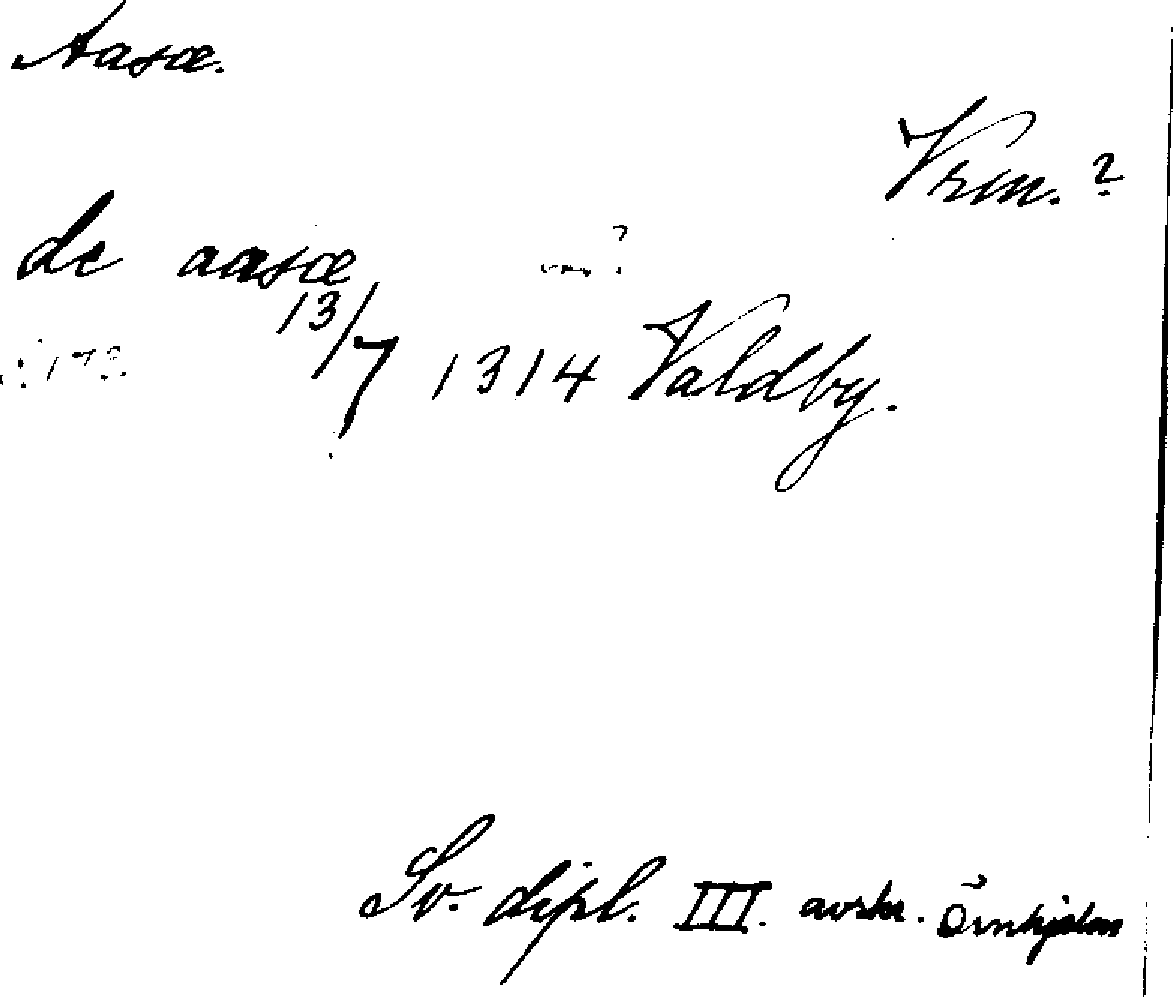 Aasæ.
Vrm. ?
de aasæ
13/7 1314 Valdby.
Sv. dipl. III. avskr. Örnhjelm